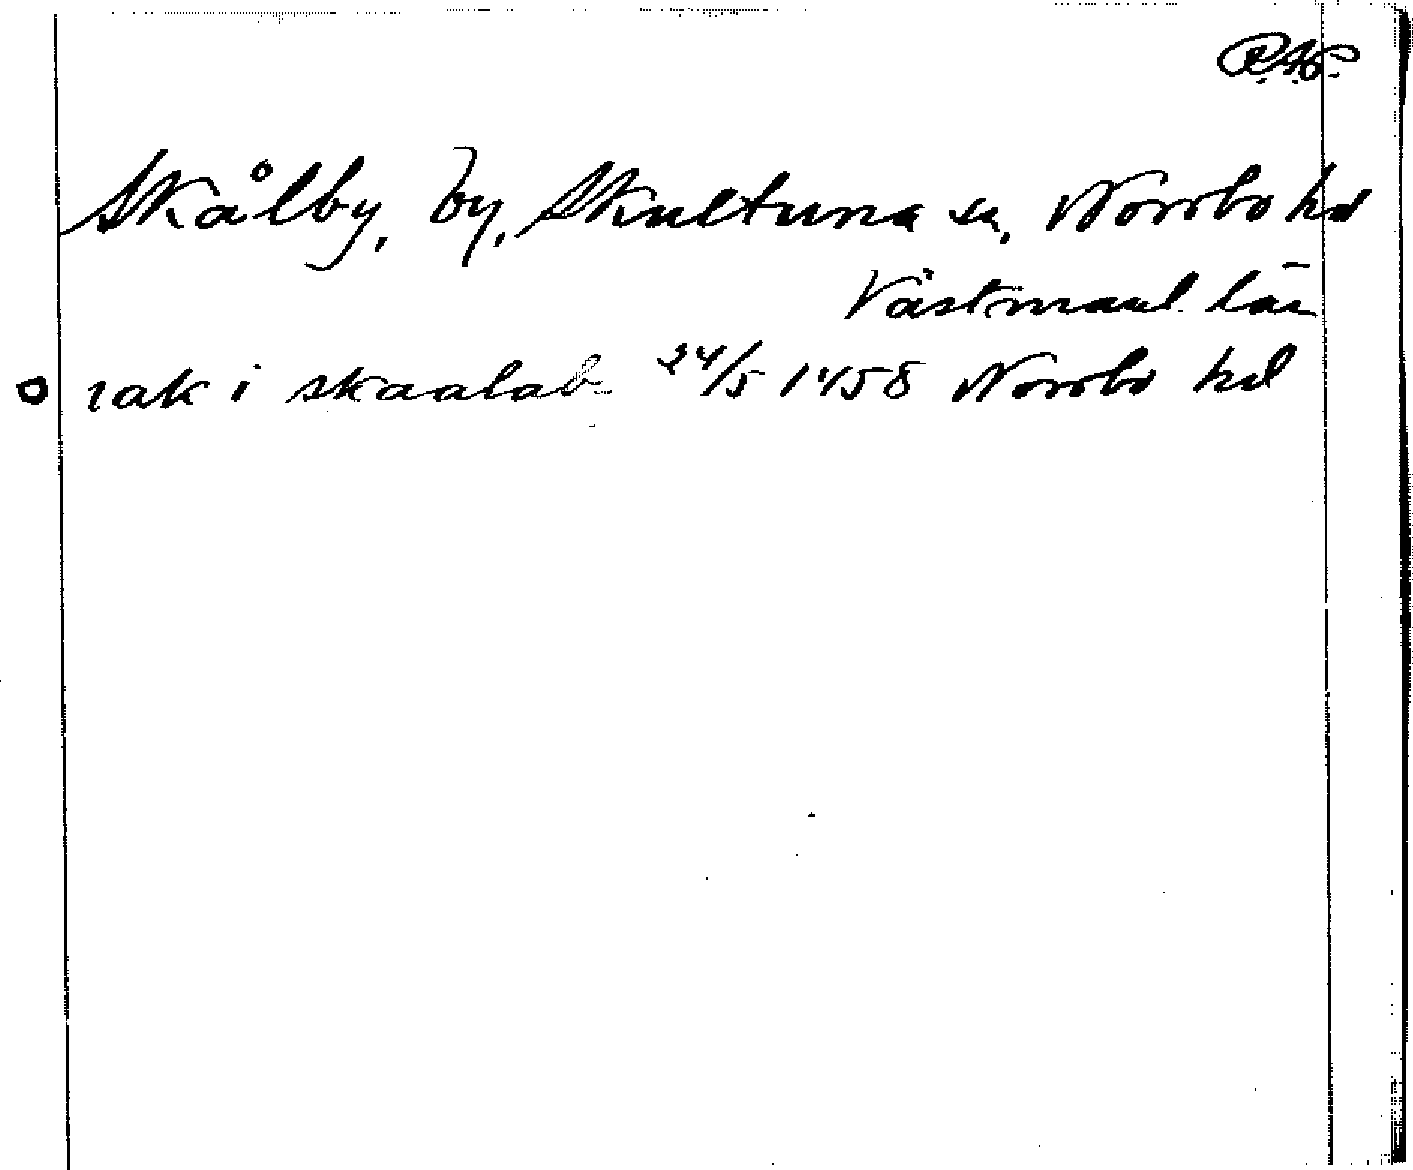 Skålby, by, Skultuna sn, Norrbo hd
Västmanl. län
o rak i skaalab- 24/5 1458 Norrbo hd